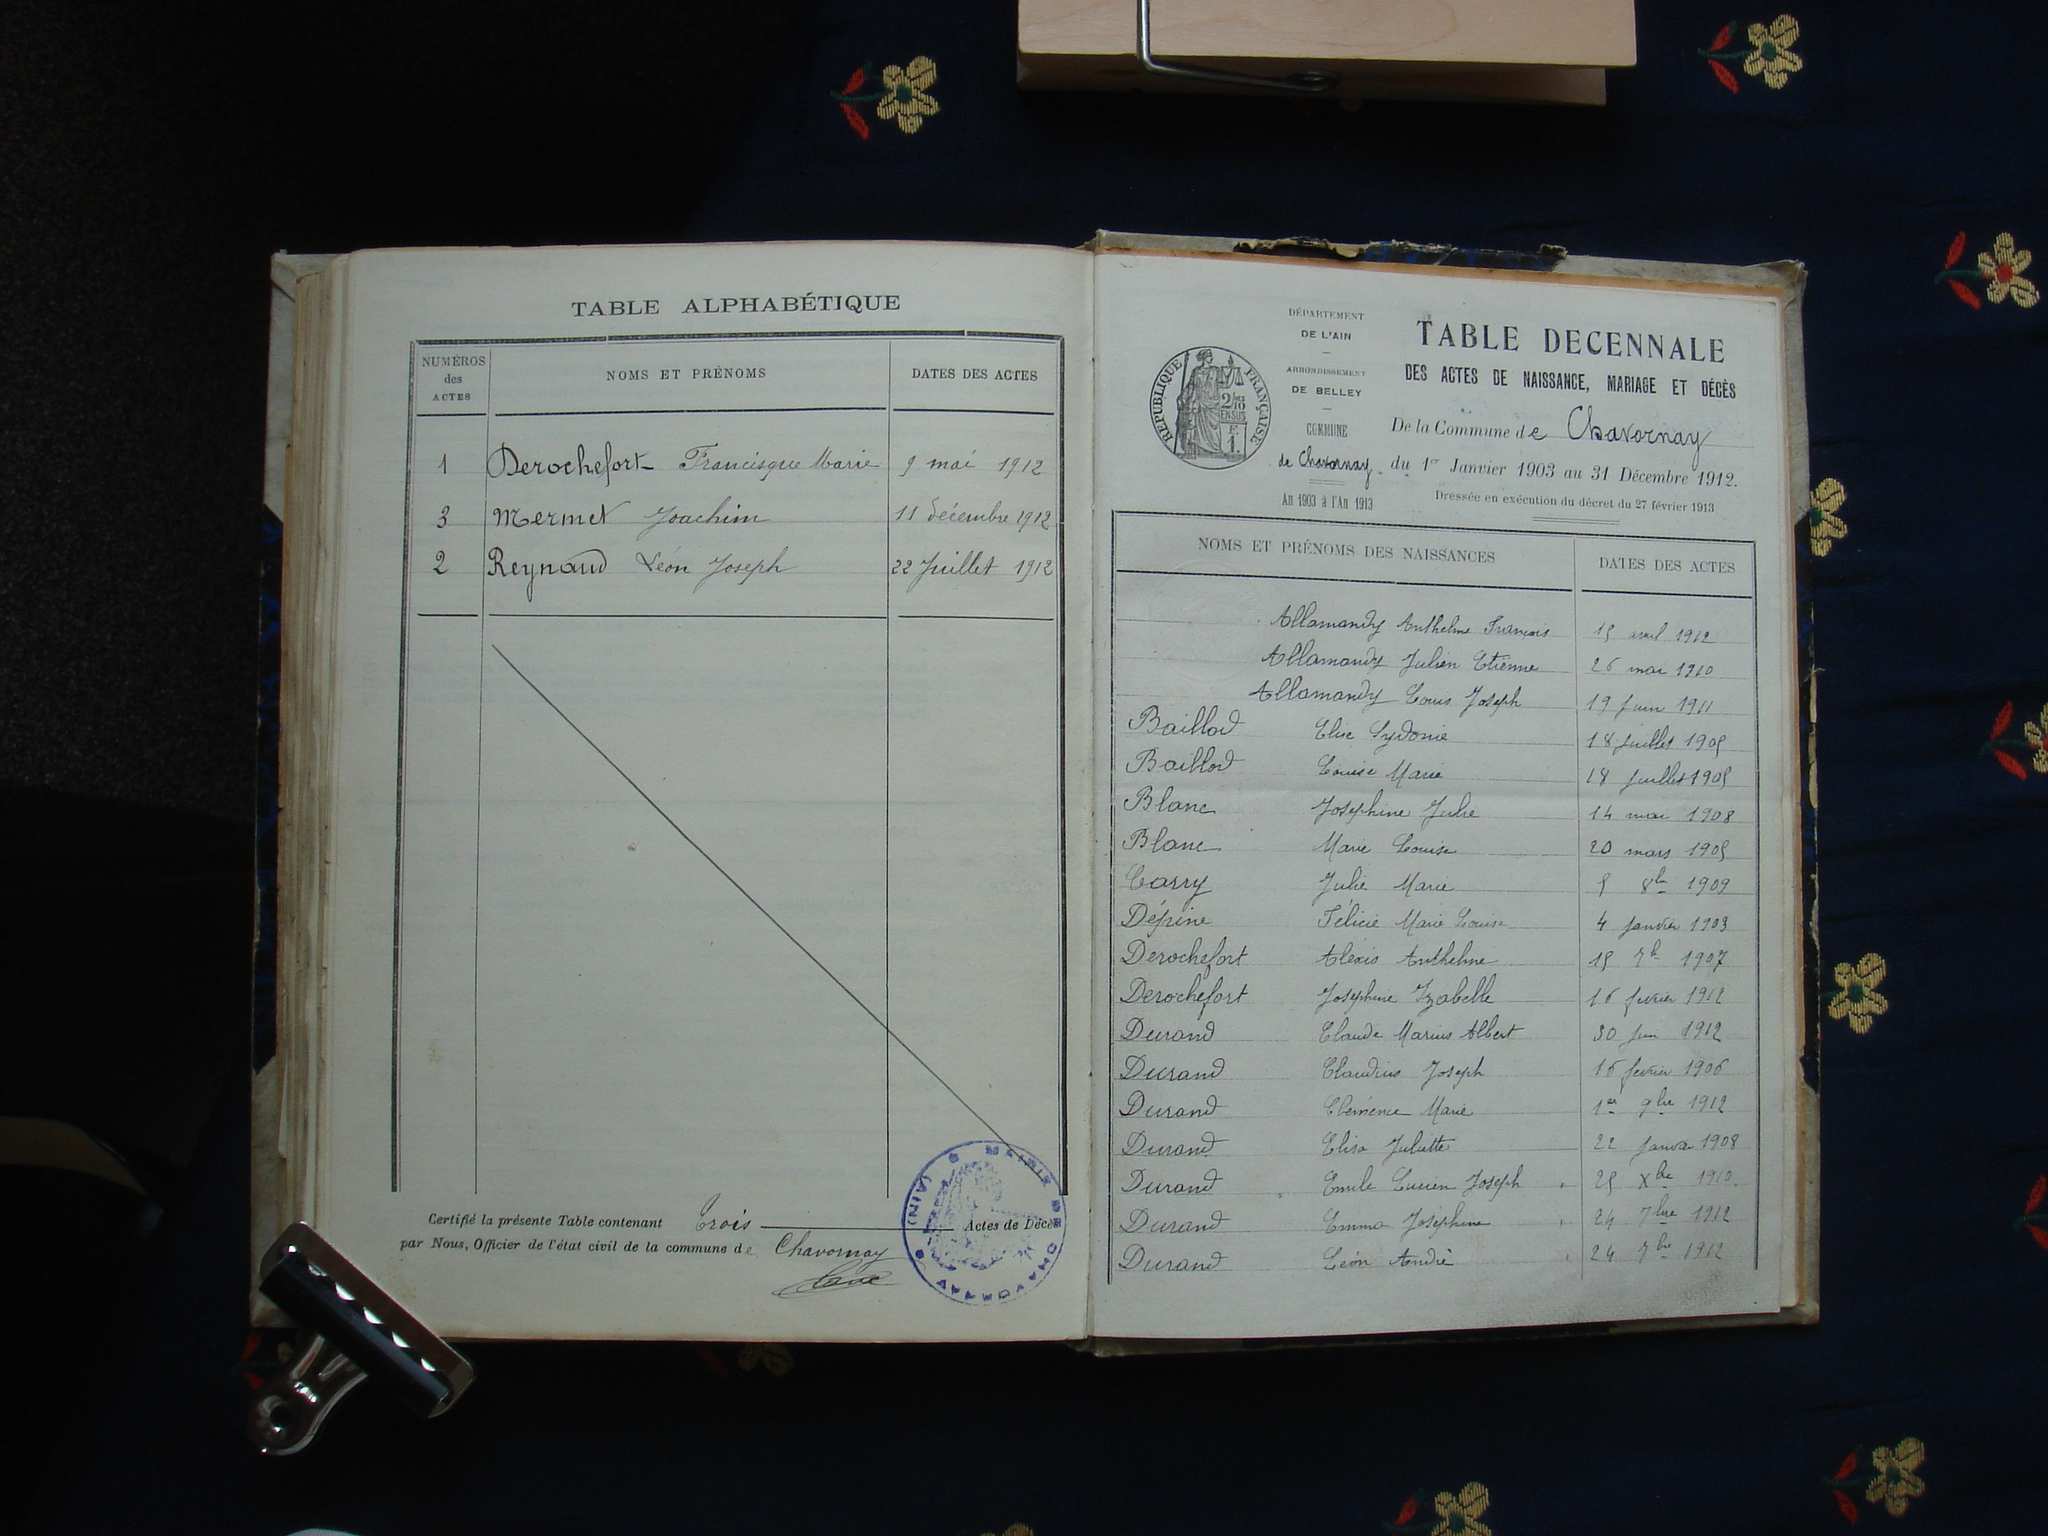 TABLE ALPHABÉTIQUE
NUMÉROS des ACTES NOMS ET PRÉNOMS DATES DES ACTES
1 Derochefort Francisque Marie 9 mai 1912
3 Mermet Joachim 11 décembre 1912
2 Reynaud Léon Joseph 22 Juillet 1912
Certifié la présente Table contenant Trois Actes de Décès
par Nous, Officier de l'état civil de la commune de Chavornay
MAIRIE DE CHAVORNAY (AIN)
DÉPARTEMENT
DE L'AIN
ARRONDISSEMENT
DE BELLEY
COMMUNE
de Chavornay
An 1903 à l'An 1913
RÉPUBLIQUE FRANÇAISE
2/10
EN SUS
F.
1.
TABLE DECENNALE
DES ACTES DE NAISSANCE, MARIAGE ET DÉCÈS
De la Commune de Chavornay
du 1er Janvier 1903 au 31 Décembre 1912.
Dressée en exécution du décret du 27 février 1913
NOMS ET PRÉNOMS DES NAISSANCES DATES DES ACTES
Allamandy Anthelme François 15 avril 1912
Allamandy Julien Etienne 26 mai 1910
Allamandy Louis Joseph 19 Juin 1911
Baillod Elise Sydonie 18 juillet 1905
Baillod Louise Marie 18 juillet 1905
Blanc Joséphine Julie 14 mai 1908
Blanc Marie Louise 20 mars 1905
Carry Julie Marie 5 8bre 1909
Dépine Félicie Marie Louise 4 janvier 1903
Derochefort Alexis Anthelme 15 7bre 1907
Derochefort Joséphine Izabelle 16 février 1912
Durand Claude Marius Albert 30 juin 1912
Durand Claudius Joseph 16 février 1906
Durand Clémence Marie 1er 9bre 1912
Durand Elisa Juliette 22 janvier 1908
Durand Emile Lucien Joseph 25 Xbre 1910
Durand Emma Joséphine 24 7bre 1912
Durand Léon André 24 7bre 1912